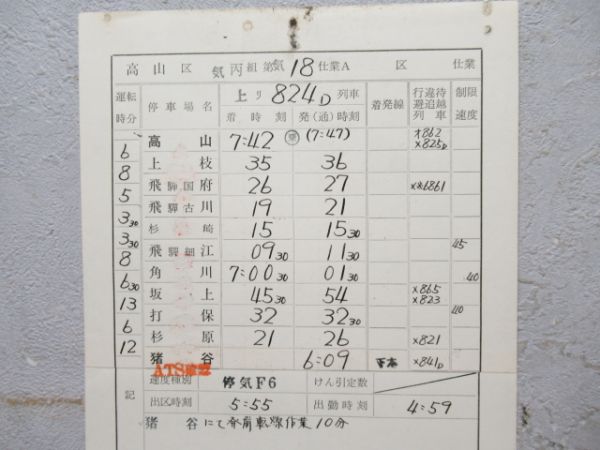 高山区 気丙組 第気18仕業A 区 仕業
運転時分 停車場名 上り 824D 列車 着発線 行違待避追越列車 制限速度
着時刻 発(通)時刻
高山 7:42 (7:47) ×862 ×825D
6
上枝 35 36
8
飛騨国府 26 27 ××6861
5
飛騨古川 19 21
3 30
杉崎 15 15 30
3 30
飛騨細江 09 30 11 30 45
8
角川 7:00 30 01 30 40
6 30
坂上 45 30 54 ×865 ×823
13
打保 32 32 30 40
6
杉原 21 26 ×821
12
猪谷 6:09 下本 ×841D
ATS確認
記 速度種別 停気F6 けん引定数
出区時刻 5:55 出勤時刻 4:59
猪谷にて 転線作業10分